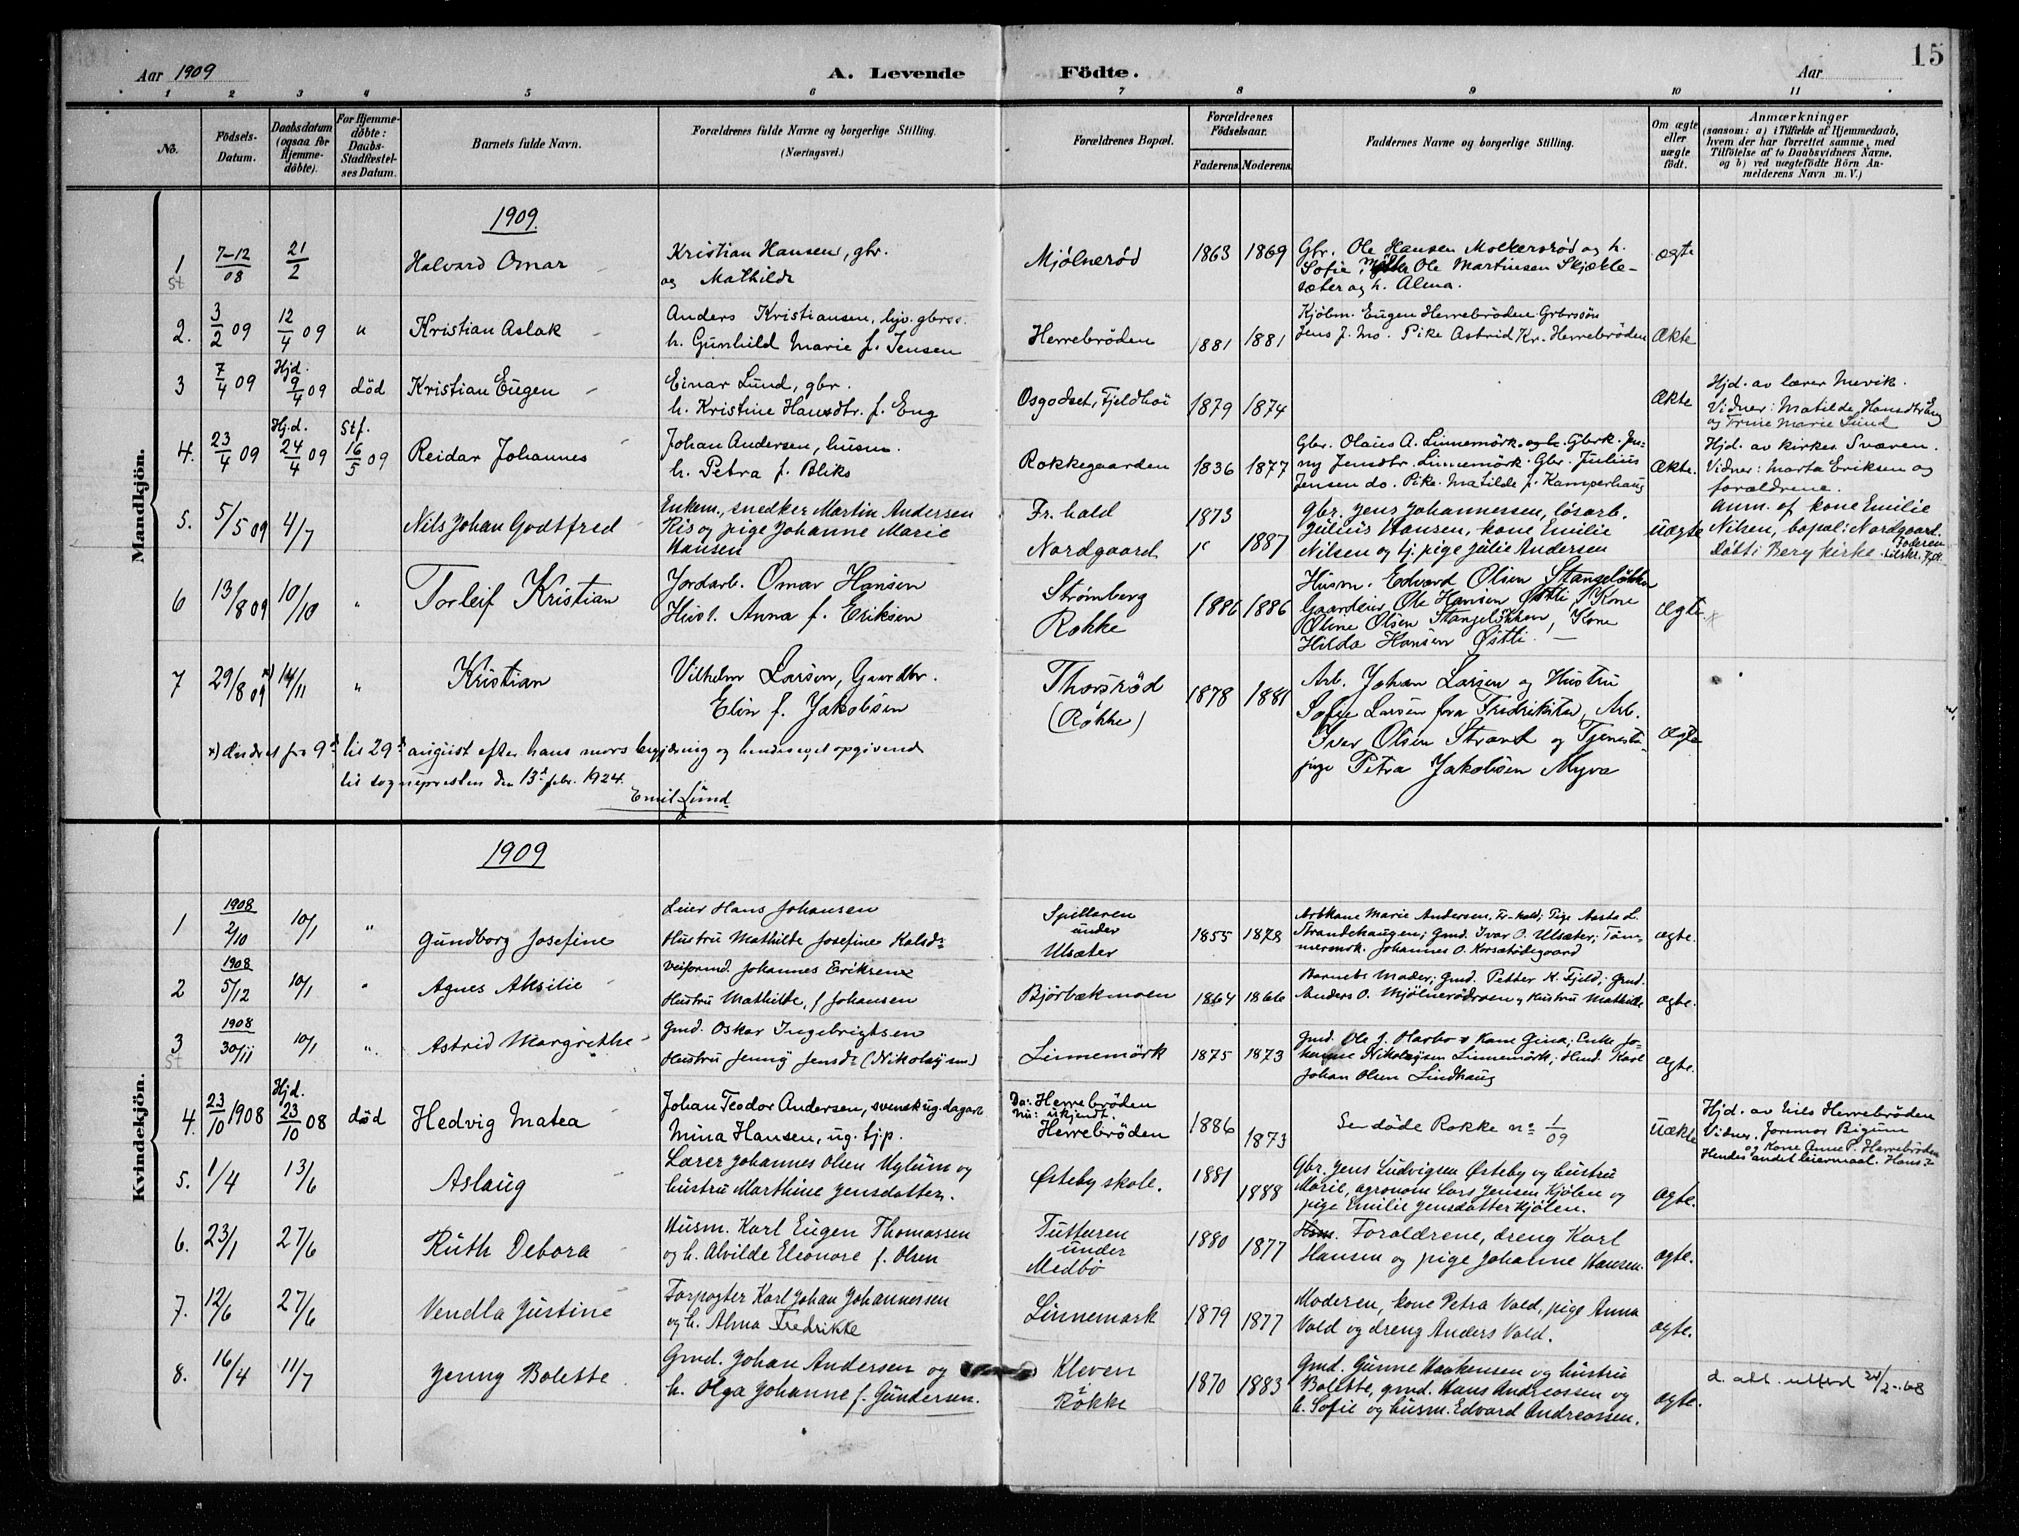 15
Aar 1909
A. Levende Födte.
Aar
1 2 3 4 5 6 7 8 9 10 11
No.
Födsels-Datum.
Daabsdatum (ogsaa for Hjemme-döbte).
For Hjemme-döbte: Daabs-Stadfæstel-ses Datum.
Barnets fulde Navn.
Forældrenes fulde Navne og borgerlige Stilling. (Næringsvei.)
Forældrenes Bopæl.
Forældrenes Födselsaar.
Faderens. Moderens.
Faddernes Navne og borgerlige Stilling.
Om ægte eller uægte født.
Anmærkninger
(saasom: a) i Tilfælde af Hjemmedaab, hvem der har forrettet samme, med Tilföielse af to Daabsvidners Navne, og b) ved uægtefödte Börn An-melderens Navn m. V.)
Mandkjön.
1909.
1 St 7-12/08 21/2 Halvard Omar
Kristian Hansen, gbr.
og Mathilde
Mjölneröd 1863 1869
Gbr. Ole Hansen Molkersröd og h.
Sofie, Ole Martinsen Skjækle-
sæter og h. Alma.
Ægte
2. 3/2 09 12/4 09 " Kristian Aslak
Anders Kristiansen, gbrss.
h. Gunhild Marie f. Jensen
Herrebröden 1881 1881
Kjöbm. Eugen Herrebröden Grbrssön
Jens J. Mo. Pike Astrid Kr. Herrebröden
Ækte
3 7/4 09 Hjd. 9/4 09 död Kristian Eugen
Einar Lund, gbr.
h. Kristine Hansdtr. f. Eng
Osgodset, Fjeldhöi 1879 1874
Ækte
Hjd. av lærer Mevik.
Vidner: Matilde Hansdtr. Eng
og Trine Marie Lund
4. 23/4 09 Hj.d. 24/4 09 Stf. 16/5 09 Reidar Johannes
Johan Andersen, husm.
h. Petra f. Bliks
Rokkegaarden 1836 1877
Gbr. Olaus A. Linnemörk. og h. Gbrk. Jen-
ny Jensdtr. Linnemörk. Gbr. Julius
Jensen do. Pike. Matilde J. Kamperhaug
Ækte.
Hjd. av kirkes. Sværen.
Vidner: Marta Eriksen og
forældrene.
5. 5/5 09 4/7 Nils Johan Godtfred
Enkem., snedker Martin Andersen
Ris og pige Johanne Marie
Hansen
Fr.hald
Nordgaard 1873 1887
Gbr. Jens Johannesen, lösarb.
Julius Hansen, kone Emilie
Nilsen og tj. pige Julie Andersen
Uægte
Anm. af kone Emilie
Nilsen, bopæl: Nordgaard.
Döbt i Berg kirke. Faderen
6 13/8 09 10/10 " Torleif Kristian
Jordarb. Omar Hansen
Hust. Anna f. Eriksen
Strömberg
Rokke 1886 1886
Husm. Edvard Olsen Stangelökken
Gaardeier Ole Hansen Östli, Kone
Oline Olsen Stangelökken, Kone
Hilda Hansen Östli.
Ægte.
7 29/8 09 x) 14/11 " Kristian
Vilhelm Larsen, Gaardbr.
Elin f. Jakobsen
Thorsröd
(Rökke) 1878 1881
Arb. Johan Larsen og Hustru
Sofie Larsen fra Fredrikstad, Arb.
Iver Olsen Strand og Tjeneste-
pige Petra Jakobsen Myva
Ægte
x) Ændret fra 9d til 29d august efter hans mors begjæring og hendes eget opgivend
til sognepresten den 13d febr. 1924.
Emil Lund
Kvindekjön.
1909
1 1908 2/10 10/1 " Gundborg Josefine
Leier Hans Johansen
Hustru Mathilde Josefine Kalsdr
Spillaren
under
Ulsæter 1855 1878
Arbkone Marie Andersen, Fr-hald; Pige Aasta L.
Strandehaugen; Gmd. Ivar O. Ulsæter; Töm-
mermrk. Johannes O. Korsetödegaard
ægte.
2 1908 5/12 10/1 " Agnes Aksilie
Veiformd. Johannes Eriksen
Hustru Mathilde, f Johansen
Björbækmoen 1864 1866
Barnets Moder; Gmd. Petter K. Fjeld; Gmd.
Anders O. Mjölnerödmoen og Hustru Mathilde
ægte.
3 St 1908 30/11 10/1 " Astrid Margrethe
Gmd. Oskar Ingebrigtsen
Hustru Jenny Jensdr (Nikolaysen)
Linnemörk 1875 1873
Gmd. Ole J. Harbo & Kone Gina; Enke Jo-
hanne Nikolaysen Linnemörk; Hmd. Karl
Johan Olsen Lindhaug
ægte.
4. 23/10 1908 Hjd. 23/10 08 död Hedvig Matea
Johan Teodor Andersen, svensk ug. dagarb
Mina Hansen, ug. tjp.
Da: Herrebröden
Nu: ukjendt.
Herrebröden 1886 1873
Se döde Rokke no 1/09
Uækte
Hjd. av Nils Herrebröden
Vidner. Jormor Bigum
og Kone Anne P. Herrebröden
Hendes andet leiermaal. Hans 1.
5. 1/4 13/6 Aslaug
Lærer Johannes Olsen Uglum og
hustru Marthine Jensdatter.
Østeby skole. 1881 1888
Gbr. Jens Ludvigsen Østeby og hustru
Marie, agronom Lars Jensen Kjölen og
pige Emilie Jensdatter Kjölen.
ægte.
6. 23/1 27/6 Ruth Debora
Husm. Karl Eugen Thomassen
og h. Alvilde Eleonore f. Olsen
Tutturen
under
Medbö 1880 1877
Hsm. Forældrene, dreng Karl
Hansen og pige Johanne Hansen.
ægte.
7. 12/6 27/6 Vendla Justine
Forpagter Karl Johan Johannessen
og h. Alma Fredrikke
Linnemark 1879 1877
Moderen, kone Petra Vold, pige Anna
Vold og dreng Anders Vold.
ægte.
8. 16/4 11/7 Jenny Bolette
Gmd. Johan Andersen og
h. Olga Johanne f. Gundersen.
Kleven
i
Rökke 1870 1883
Gmd. Gunne Haakensen og hustru
Bolette, gmd. Hans Andreassen og
h. Sofie og husm. Edvard Andreassen.
ægte.
d. att. utferd 24/2-68